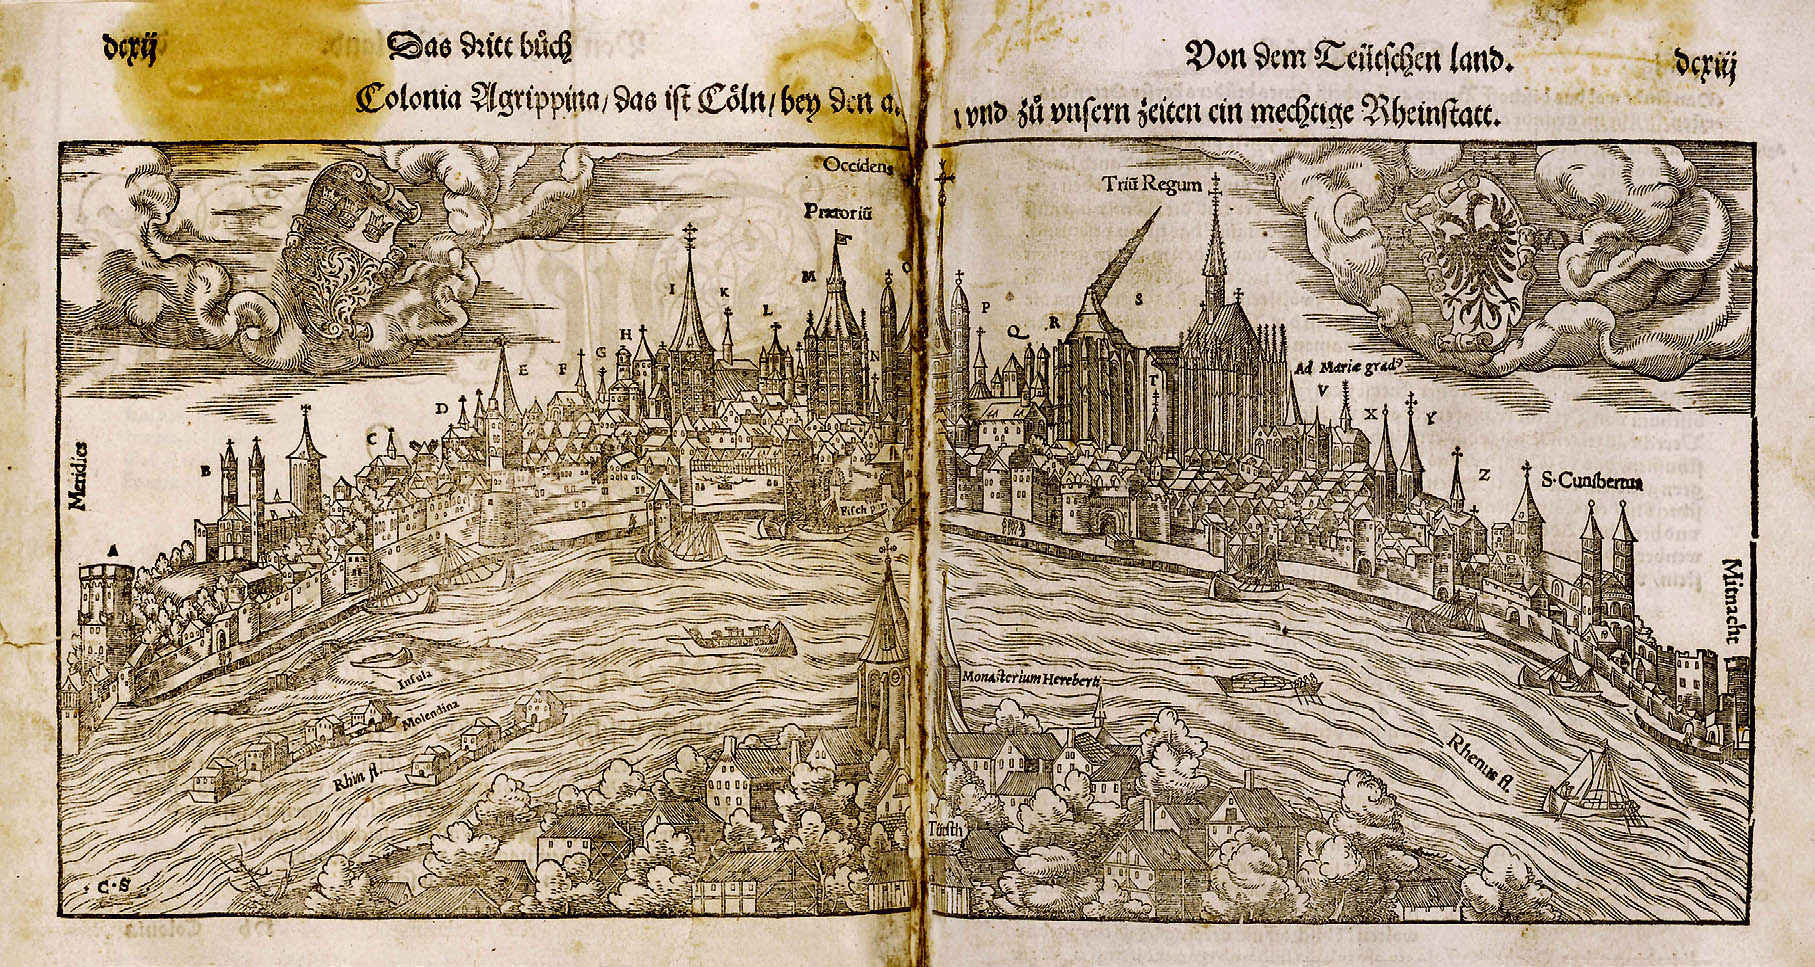 dcxij
Das dritt bůch
Von dem Teütschen land.
dcxiij
Colonia Agrippina/das ist Cöln/bey den
vnd zů vnsern zeiten ein mechtige Rheinstatt.
Occidens
Triũ Regum
Prætoriũ
M
I
K
L
P
Q
R
S
H
G
F
E
N
T
Ad Mariæ grad⁹
V
X
Y
D
C
B
Meridies
Z
S. Cunibertus
A
Fisch
Mitnacht
Insula
Molendina
Monasterium Hereberti
Rhin fl.
Rhenus fl.
Tütsch
·C·S·